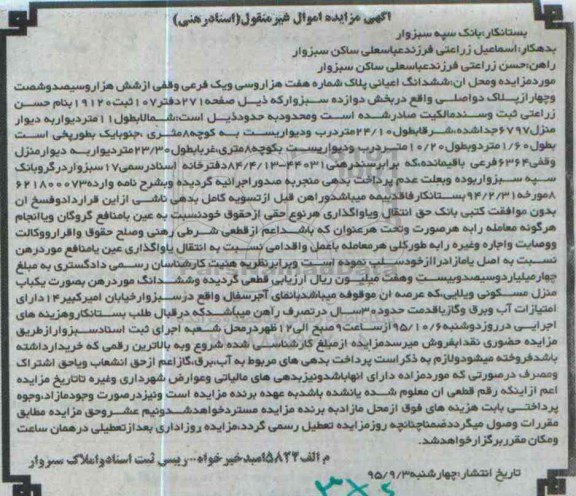 آگهی مزایده اموال غیرمنقول(اسنادرهنی)
بستانکار:بانک سپه سبزوار
بدهکار:اسماعیل زراعتی فرزندعباسعلی ساکن سبزوار
راهن:حسن زراعتی فرزندعباسعلی ساکن سبزوار
موردمزایده ومحل ان:ششدانگ اعیانی پلاک شماره هفت هزاروسی ویک فرعی وقفی ازشش هزاروسیصدوشصت
وچهارازپلاک دواصلی واقع دربخش دوازده سبزوارکه ذیل صفحه۲۷۱دفتر۱۰۷ثبت۱۹۱۲۰بنام حسن
زراعتی ثبت وسندمالکیت صادرشده است ومحدودبه حدودذیل است:شمالابطول۱۱متردیواربه دیوار
منزل۶۷۹۷جداشده،شرقابطول۲۴/۱۰متردرب ودیواریست به کوچه۸متری ،جنوبایک بطوریخی است
بطول۱/۶۰متردوبطول۱۰/۲۰متردرب ودیواریست بکوچه۸متری،غربابطول۲۳/۳۰متردیواربه دیوارمنزل
وقفی۶۳۶۴فرعی باقیمانده،که برابرسندرهنی۴۴۰۳۱-۸۴/۴/۱۳دفترخانه اسنادرسمی۱۷سبزواردرگروبانک
سپه سبزواربوده وبعلت عدم پرداخت بدهی منجربه صدوراجرائیه گردیده وبشرح نامه وارده۶۲۱۸۰۰۰۷۳
۸مورخه۹۴/۲/۳۱بستانکارفاقدبیمه میباشدوراهن قبل ازتسویه کامل بدهی ناشی ازاین قراردادوفسخ ان
بدون موافقت کتبی بانک حق انتقال ویاواگذاری هرنوع حقی ازحقوق خودنسبت به عین یامنافع گروگان ویاانجام
هرگونه معامله رابه هرصورت وتحت هرعنوان که باشداعم ازقطعی شرطی رهنی وصلح حقوق واقرارووکالت
ووصایت واجاره وغیره رابه طورکلی هرمعامله باعمل واقدامی نسبت به انتقال یاواگذاری عین یامنافع موردرهن
نسبت به اصل یامازادراازخودسلب نموده است وبرابرنظریه هئیت کارشناسان رسمی دادگستری به مبلغ
چهارمیلیاردوسیصدوبیست وهفت میلیون ریال ارزیابی قطعی گردیده وششدانگ موردرهن بصورت یکباب
منزل مسکونی ویلایی،که عرصه ان موقوفه میباشدبانمای آجرسفال واقع درسبزوارخیابان امیرکبیر۱۴دارای
امتیازات آب وبرق وگازباقدمت حدود۳۰سال درتصرف راهن میباشدکه درقبال طلب بستانکاروهزینه های
اجرایی درروزدوشنبه۹۵/۱۰/۶ازساعت۹صبح الی۱۲ظهردرمحل شعبه اجرای ثبت اسنادسبزوارازطریق
مزایده حضوری نقدابفروش میرسدمزایده ازمبلغ کارشناسی شده شروع وبه بالاترین رقمی که خریدارداشته
باشدفروخته میشودولازم به ذکراست پرداخت بدهی های مربوط به آب،برق،گازاعم ازحق انشعاب ویاحق اشتراک
ومصرف درصورتی که موردمزاده دارای انهاباشدونیزبدهی های مالیاتی وعوارض شهرداری وغیره تاتاریخ مزایده
اعم ازاینکه رقم قطعی ان معلوم شده یانشده باشدبه عهده برنده مزایده است ونیزدرصورت وجودمازاد،وجوه
پرداختی بابت هزینه های فوق ازمحل مازادبه برنده مزایده مستردخواهدشدونیم عشروحق مزایده مطابق
مقررات وصول میگرددضمناچنانچه روزمزایده تعطیل رسمی گردد،مزایده روزاداری بعدازتعطیلی درهمان ساعت
ومکان مقرربرگزارخواهدشد.
م الف۵۸۲۲امیدخیرخواه...رییس ثبت اسنادواملاک سبزوار
تاریخ انتشار:چهارشنبه۹۵/۹/۳